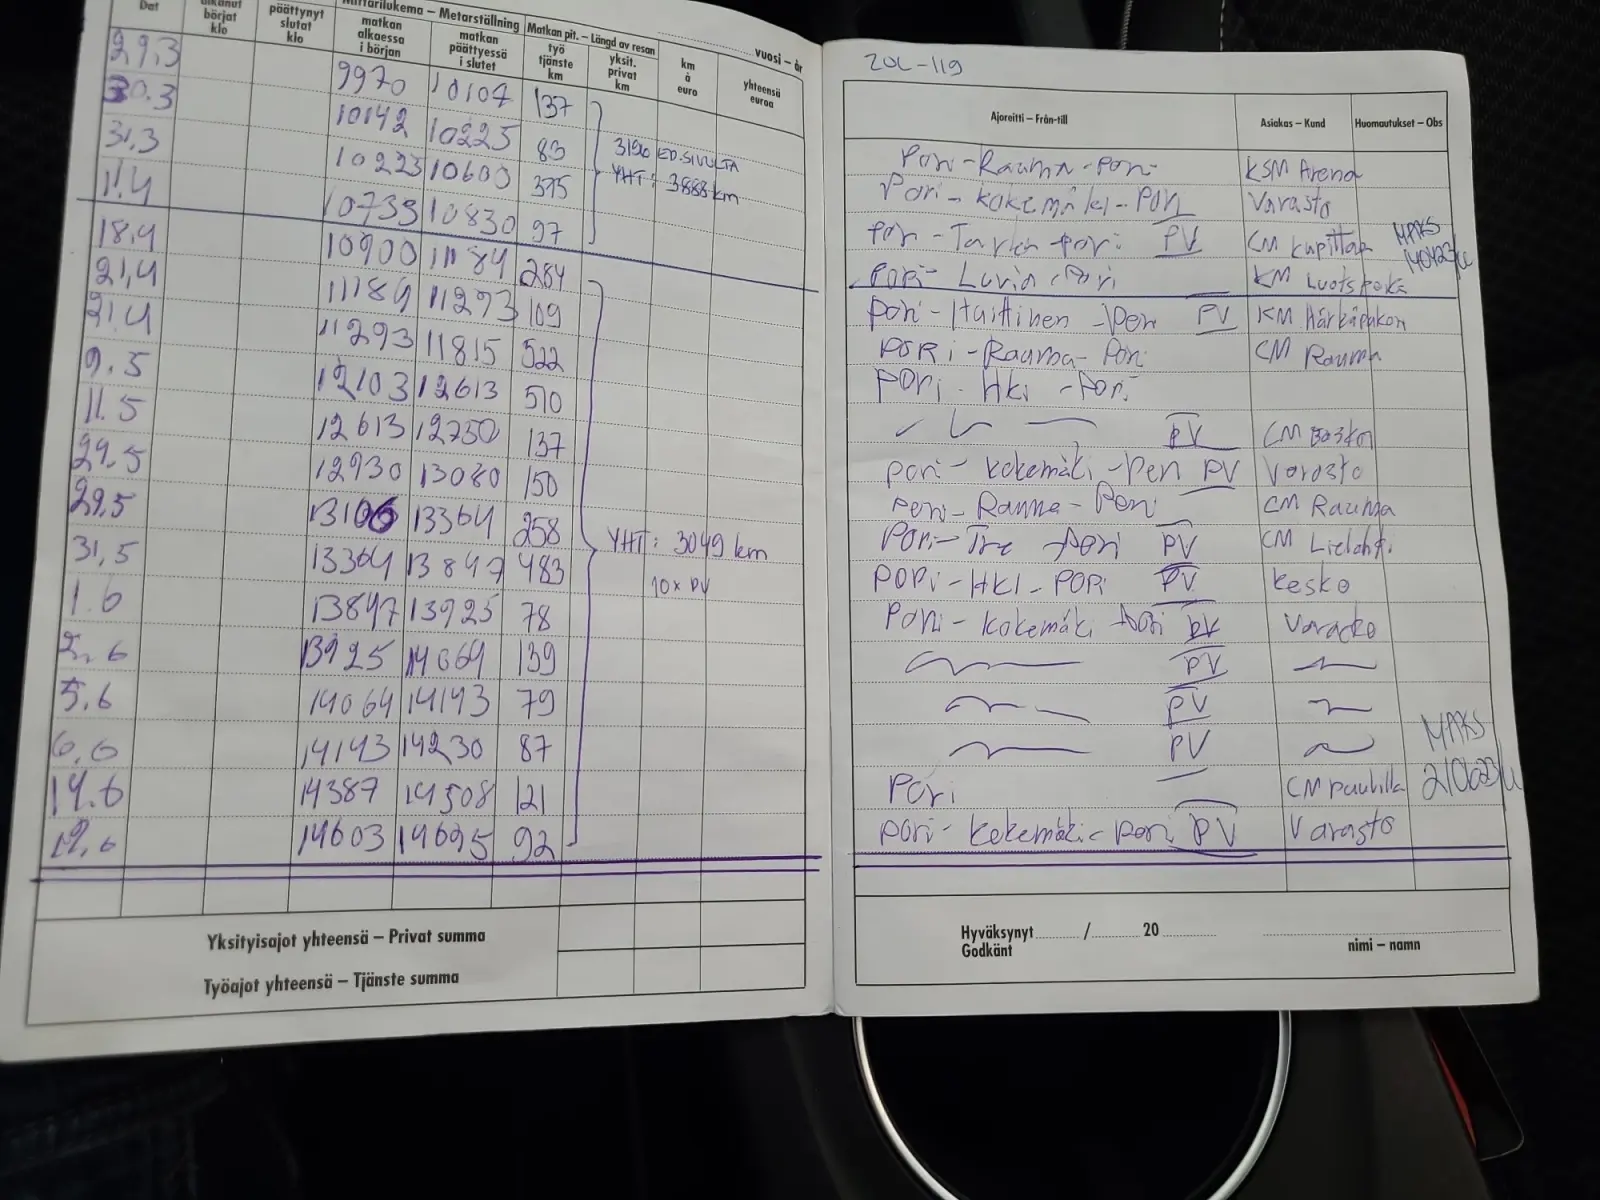 Dat
börjat
klo
päättynyt
slutat
klo
Mittarilukema – Metarställning
matkan
alkaessa
i början
matkan
päättyessä
i slutet
Matkan pit. – Längd av resan
työ
tjänste
km
yksit.
privat
km
km
à
euro
vuosi – år
yhteensä
euroa
29,3 9970 10107 137
30.3 10142 10225 83
31,3 10225 10600 375
1.4 10733 10830 97
3190 ED.SIVULTA
YHT: 3888 km
18,4 10900 11184 284
21,4 11184 11293 109
21.4 11293 11815 522
9.5 12103 12613 510
11.5 12613 12750 137
24.5 12930 13080 150
29.5 13106 13364 258
31,5 13364 13847 483
1.6 13847 13925 78
2.6 13925 14064 139
5.6 14064 14143 79
6.6 14143 14230 87
14.6 14387 14508 121
19.6 14603 14695 92
YHT: 3049 km
10x PV
Yksityisajot yhteensä – Privat summa
Työajot yhteensä – Tjänste summa
ZOL-119
Ajoreitti – Från-till Asiakas – Kund Huomautukset – Obs
Pori-Rauma-Pori KSM Arena
Pori-Kokemäki-Pori Varasto
Pori - Pori PV CM Kupittaa
Pori- Luvia-Pori KM
MAKS
140423
Pori-Huittinen-Pori PV KM Härkäpakka
PORi-Rauma-Pori CM Rauma
Pori-Hki-Pori
PV CM
Pori-Kokemäki-Pori PV Varasto
Pori-Rauma-Pori CM Rauma
Pori-Tre-Pori PV CM Lielahti
PORi-HKI-PORi PV Kesko
Pori-Kokemäki-Pori PV Varasto
PV
PV
PV
Pori CM
MAKS
210623
Pori-Kokemäki-Pori PV Varasto
Hyväksynyt / 20
Godkänt
nimi – namn